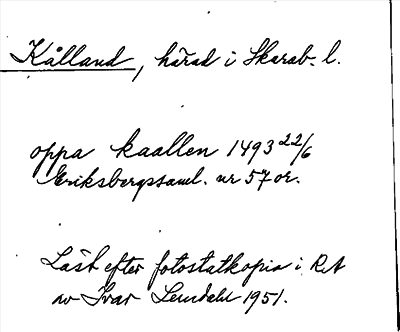 Kålland, härad i Skarab. l.
oppa kaallen 1493 22/6
Eriksbergssaml. nr 57 or.
Läst efter fotostatkopia i RA
av Ivar Lundahl 1951.